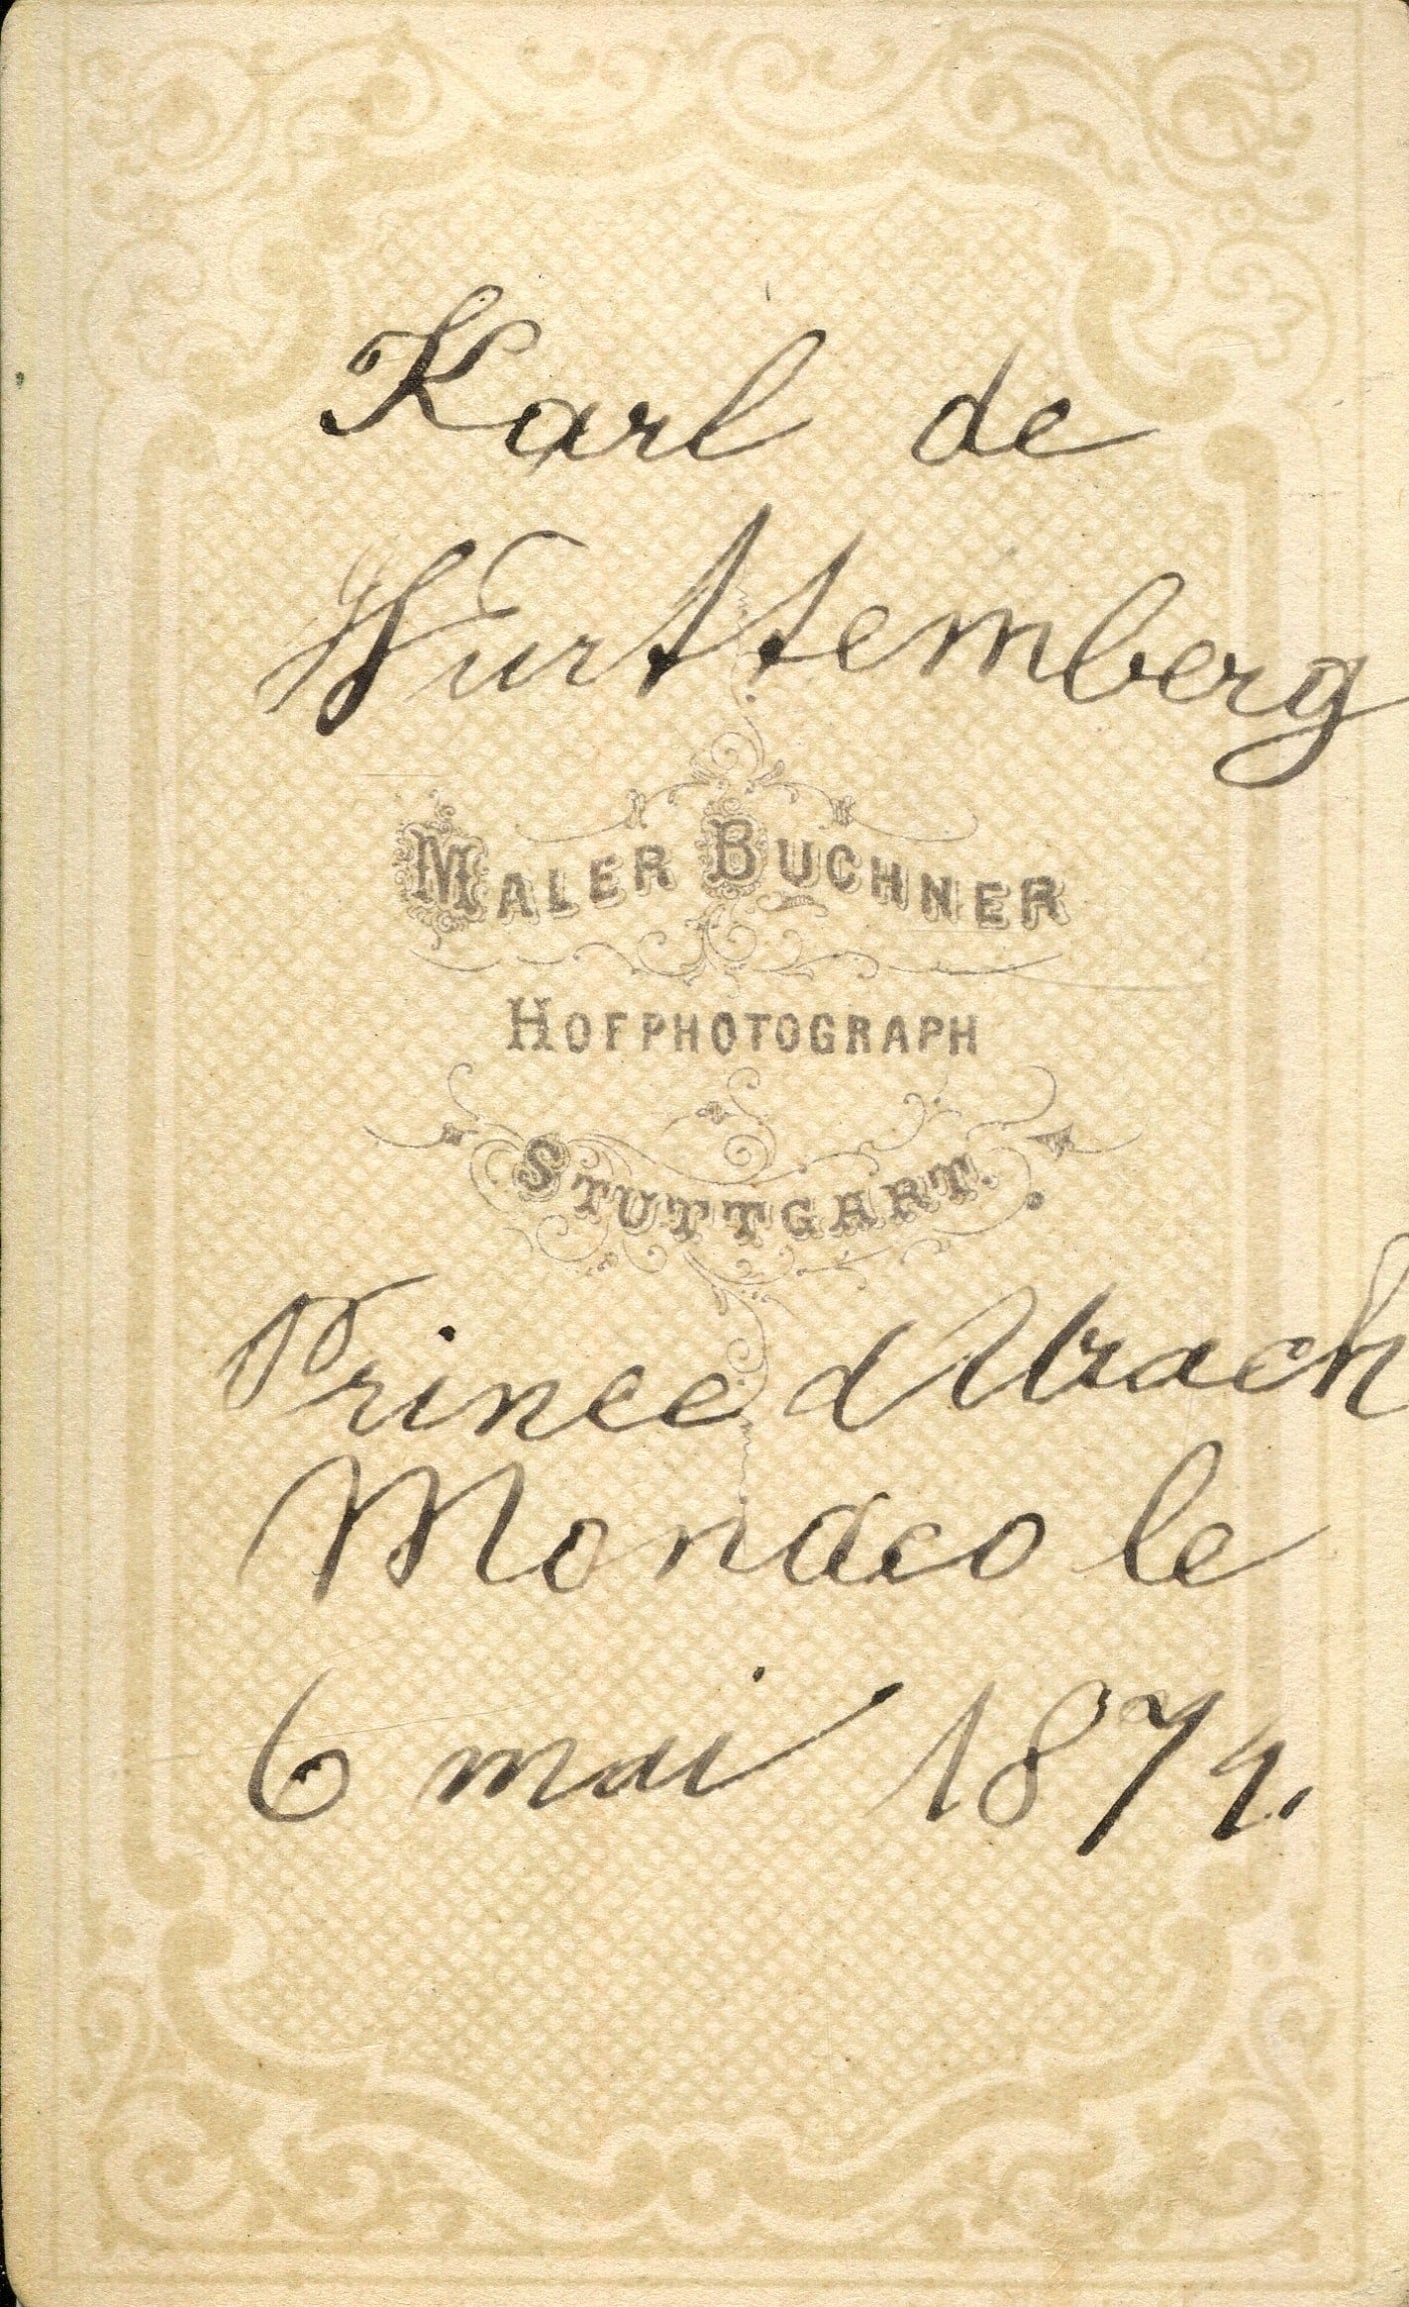 Karl de
Wurttemberg
MALER BUCHNER
HOFPHOTOGRAPH
STUTTGART.
Prince d'Urach
Monaco le
6 mai 1874.